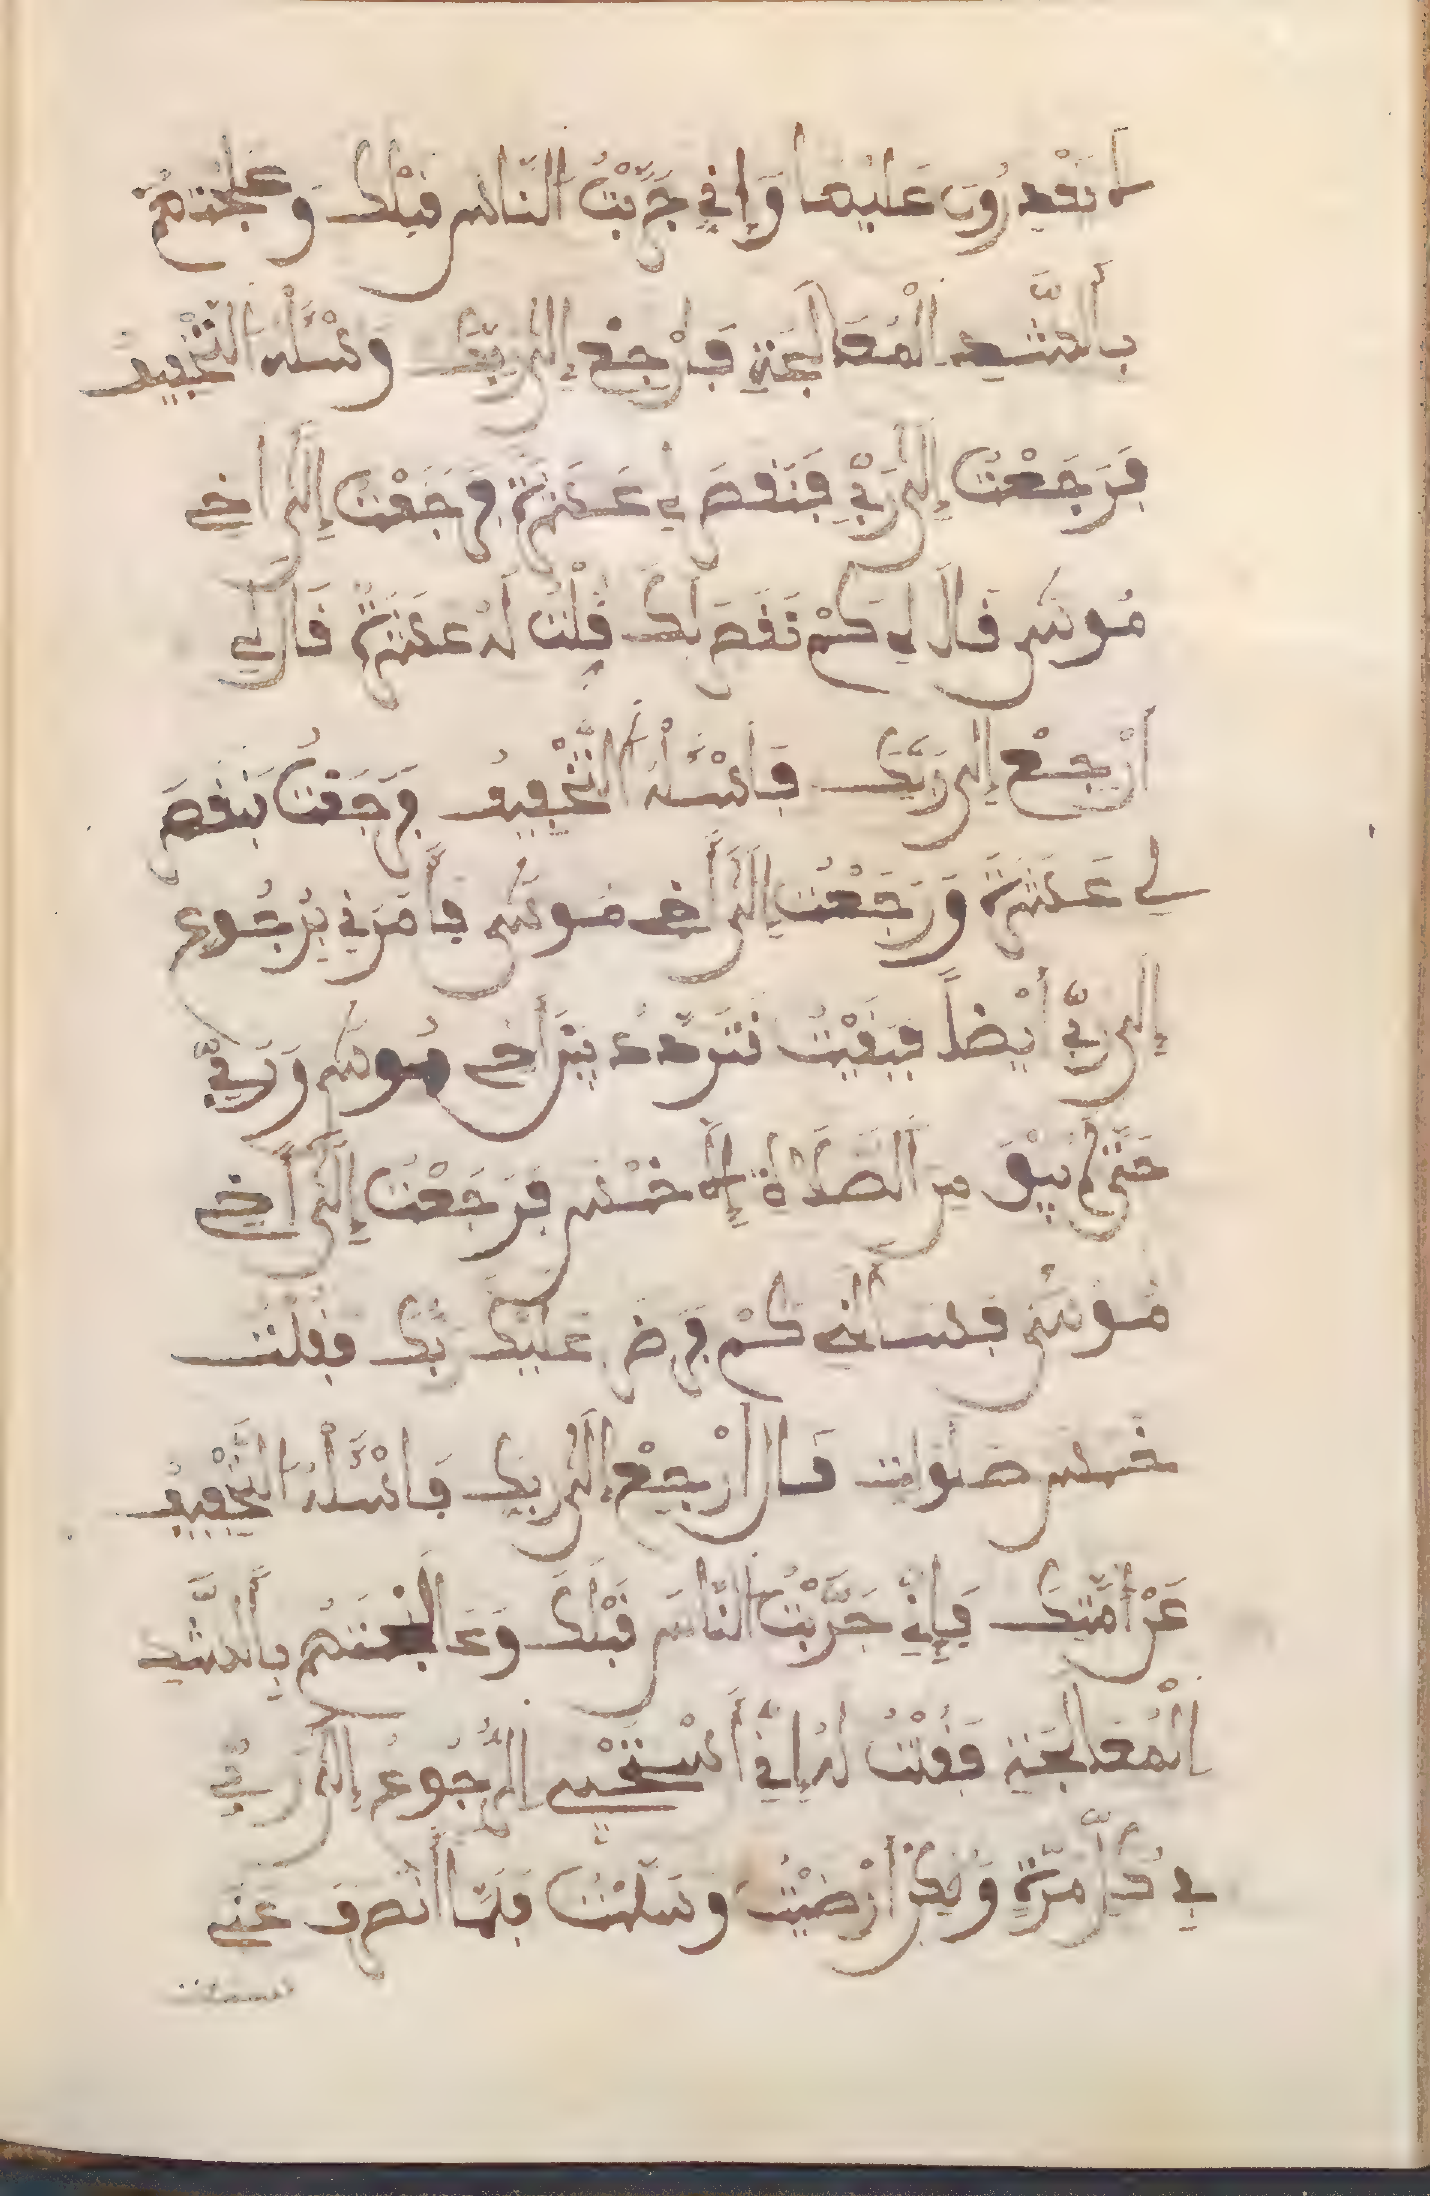 لا تقدرون عليها وإني جربت الناس قبلك وعالجتهم
بأشد المعالجة فارجع إلى ربك وسئله التخفيف
فرجعت إلى ربي فنقص لي عشرة فرجعت إلى أخي
موسى قال لي كم نقص لك قلت له عشرة قال لي
ارجع إلى ربك فاسئله التخفيف فرجعت فنقص
لي عشرة ورجعت إلى أخي موسى فأمرني برجوع
إلى ربي أيضا فبقيت نتردد بين أخي موسى وربي
حتى لم يبق من الصلاة إلا خمس فرجعت إلى أخي
موسى فسألني كم فرض عليك ربك فقلت
خمس صلوات قال ارجع إلى ربك فاسئله التخفيف
عن أمتك فإني جربت الناس قبلك وعالجتهم بأشد
المعالجة فقلت له إني أستحيي الرجوع إلى ربي
في كل مرة ولكن أرضيت وسلمت فلما انصرف عني
سمعت